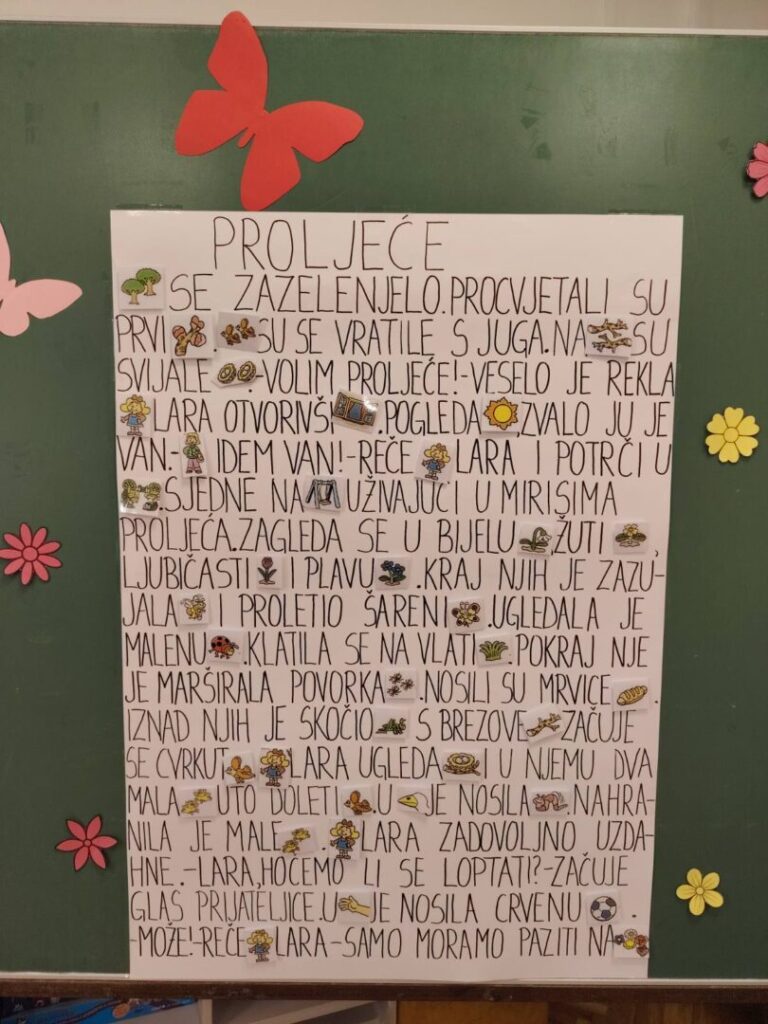 PROLJEĆE
SE ZAZELENJELO. PROCVJETALI SU
PRVI . SU SE VRATILE S JUGA. NA SU
SVIJALE . -VOLIM PROLJEĆE!-VESELO JE REKLA
LARA OTVORIVŠI . POGLEDA , ZVALO JU JE
VAN.- IDEM VAN!-REČE LARA I POTRČI U
. SJEDNE NA UŽIVAJUĆI U MIRISIMA
PROLJEĆA. ZAGLEDA SE U BIJELU , ŽUTI ,
LJUBIČASTI I PLAVU . KRAJ NJIH JE ZAZU-
JALA I PROLETIO ŠARENI . UGLEDALA JE
MALENU . KLATILA SE NA VLATI . POKRAJ NJE
JE MARŠIRALA POVORKA . NOSILI SU MRVICE .
IZNAD NJIH JE SKOČIO . S BREZOVE ZAČUJE
SE CVRKUT . LARA UGLEDA I U NJEMU DVA
MALA . UTO DOLETI . U JE NOSILA . NAHRA-
NILA JE MALE . LARA ZADOVOLJNO UZDA-
HNE. -LARA, HOĆEMO LI SE LOPTATI?-ZAČUJE
GLAS PRIJATELJICE. U JE NOSILA CRVENU .
-MOŽE!-REČE LARA-SAMO MORAMO PAZITI NA